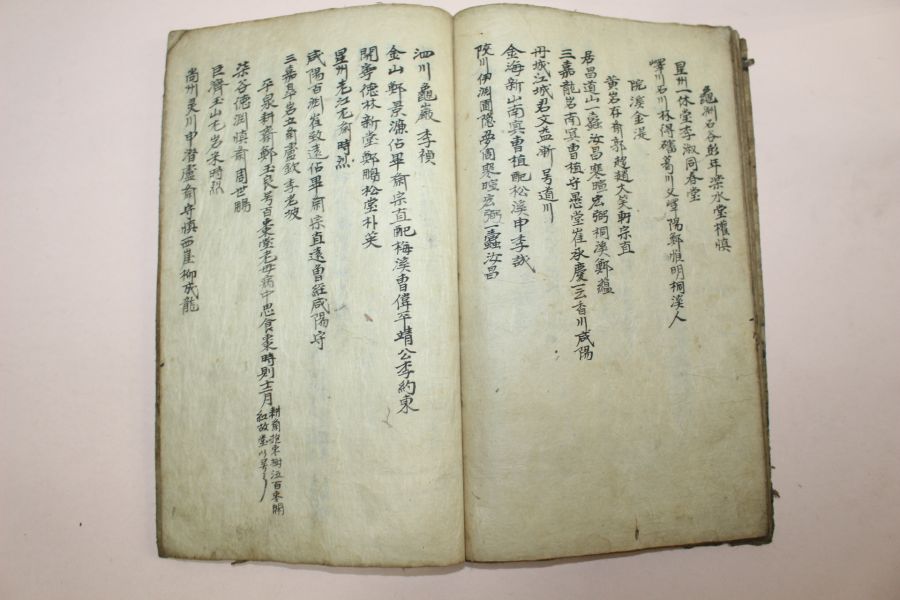 龜淵石谷彭年樂水堂權愼
星州一休堂李淑同春堂
嶧川石川林得蕃葛川又嶧陽鄭惟明桐溪人
院溪金湜
黃岩存齋郭趕大笑軒宗直
居昌道山一蠹汝昌寒暄宏弼桐溪鄭蘊
三嘉龍岩南冥曺植守愚堂崔永慶一云香川咸陽
丹城江城君文益漸号道川
金海新山南冥曺植配松溪申季誠
陜川伊淵圃隱夢周寒暄宏弼一蠹汝昌
泗川龜巖李楨
金山鄭景濂佔畢齋宗直配梅溪曺偉平靖公李約東
開寧德林新堂鄭鵬松堂朴英
星州老江尤齋時烈
咸陽百淵崔致遠佔畢齋宗直遠曾經咸陽守
三嘉皐岩立齋盧欽李老坡
平泉耕齋鄭玉良号百棗堂老母病中思食棗時則十二月耕齋抱棗樹泣百棗開紅故堂以号
柒谷德淵愼齋周世鵬
巨濟玉山尤岩宋時烈
尙州灵川申潛盧齋守愼西崖柳成龍